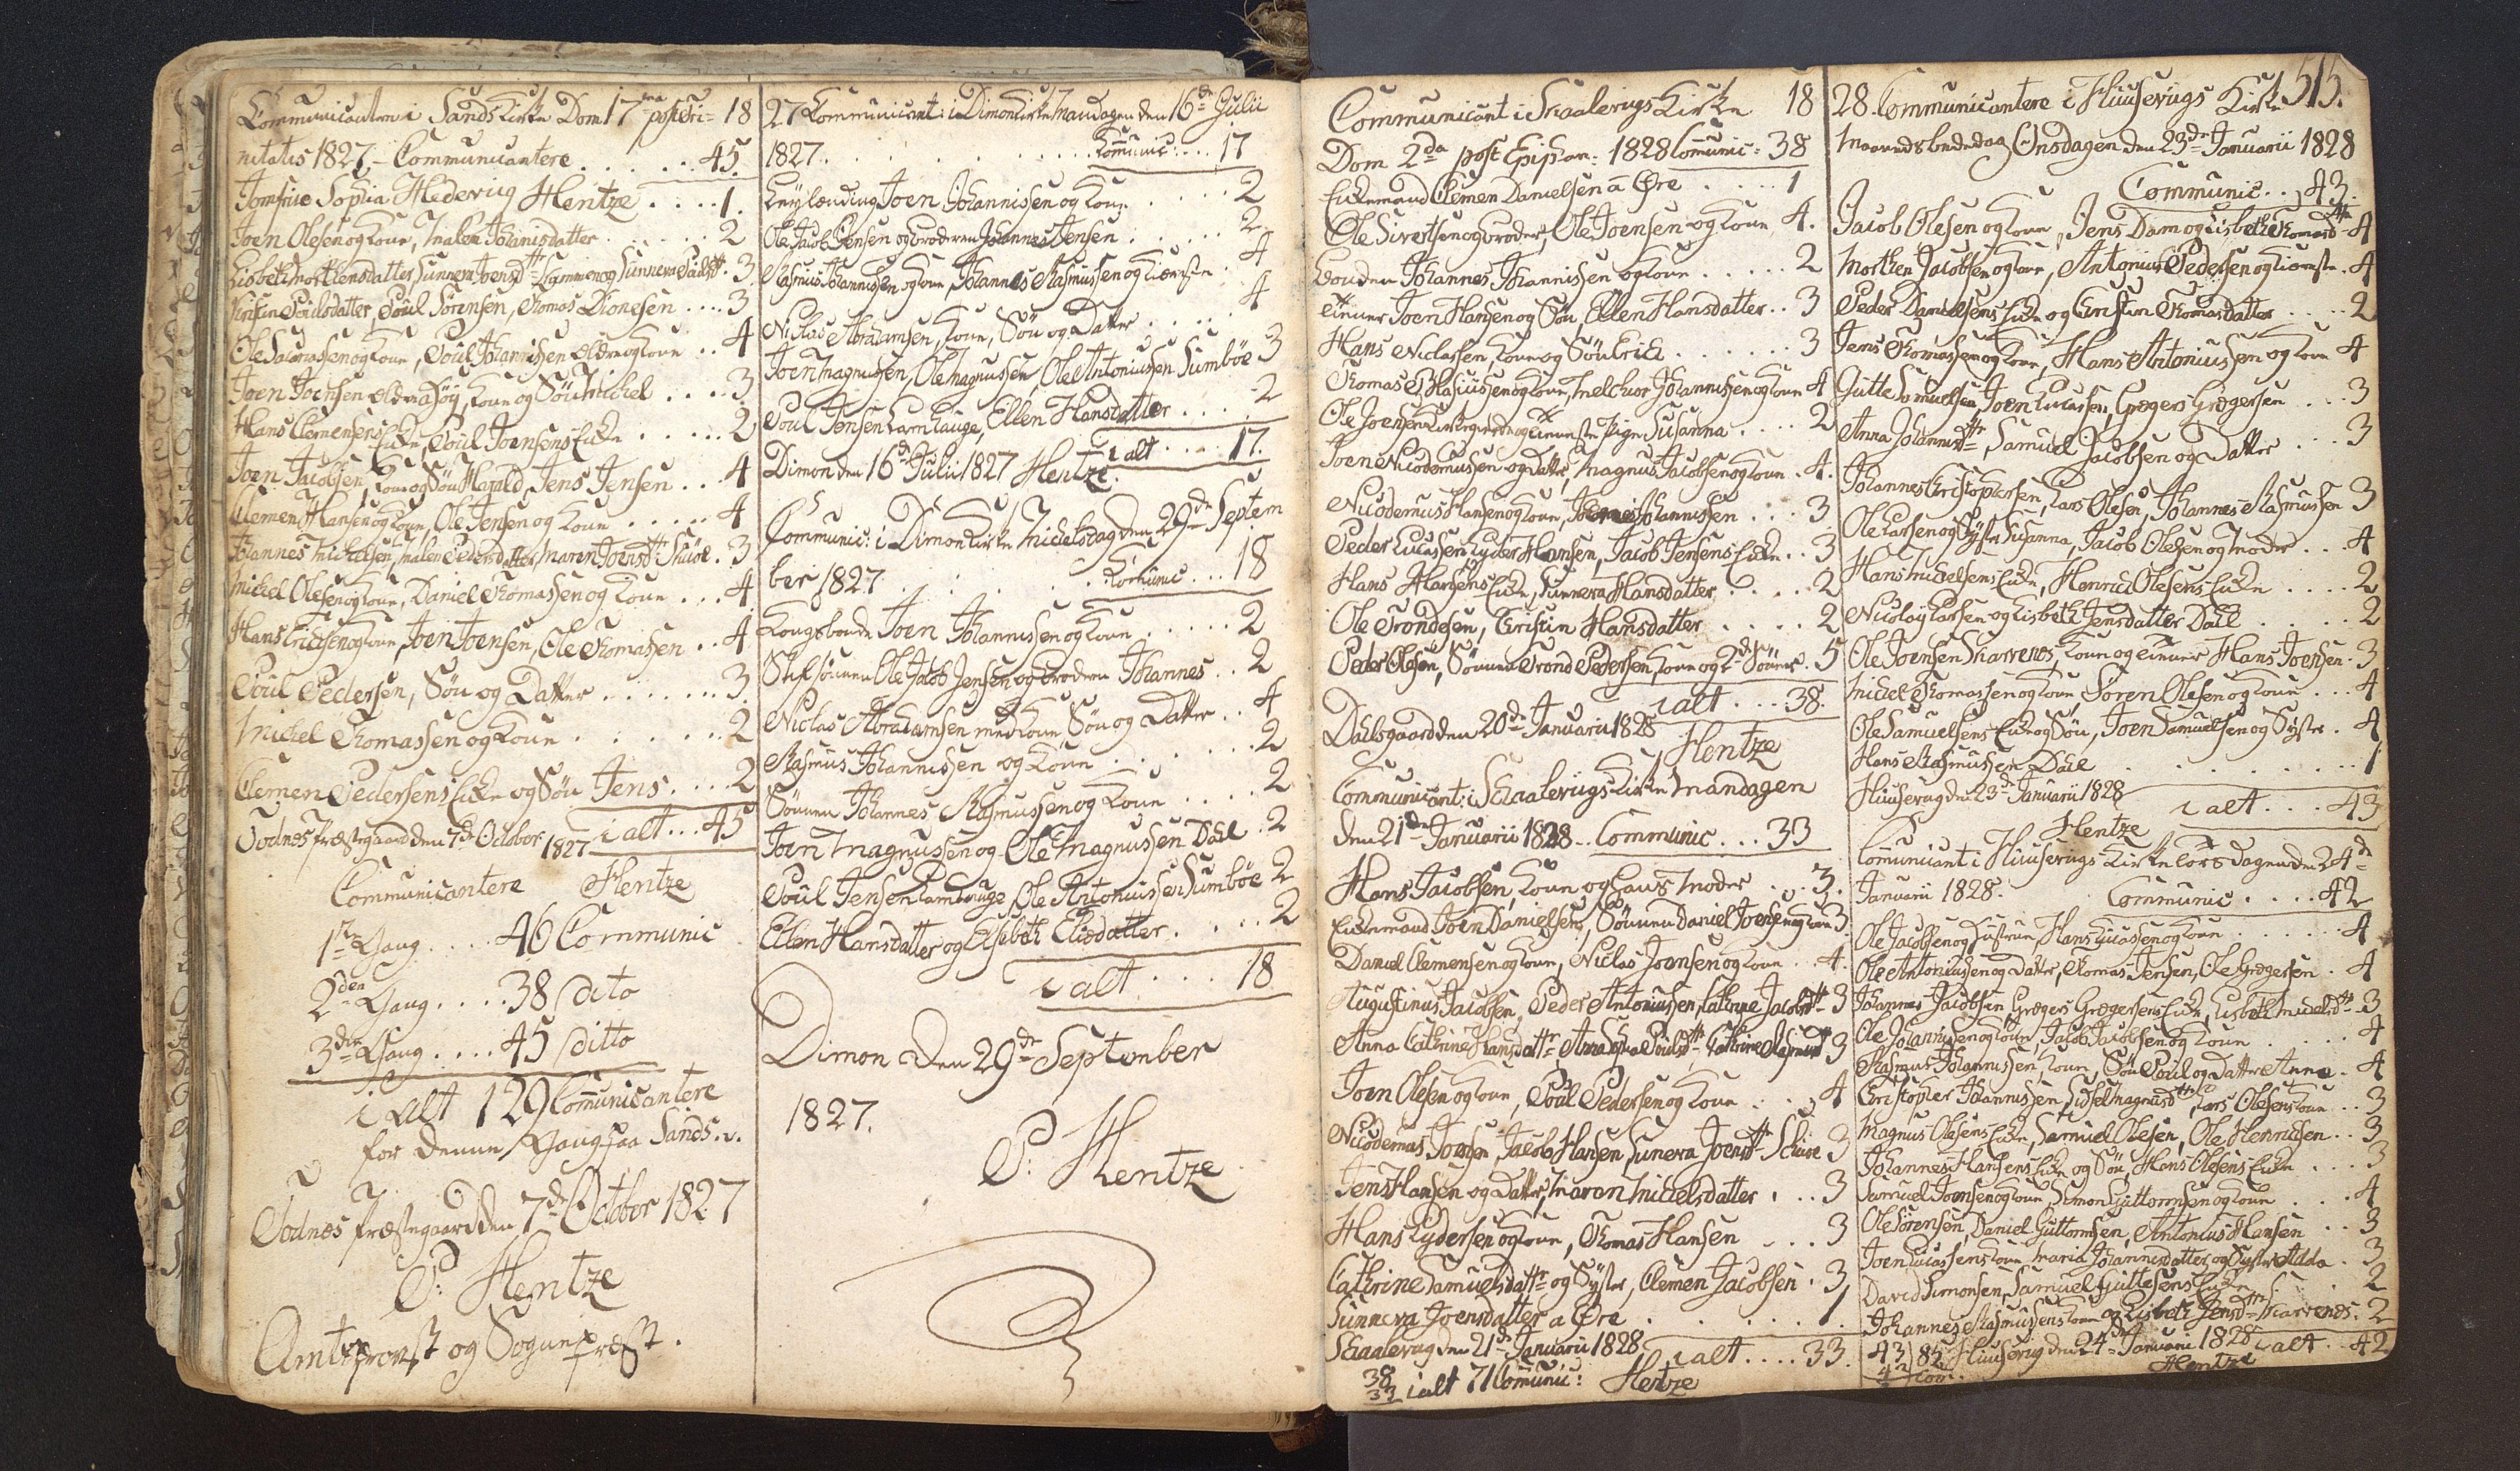 Communicantere i Sands Kirke Dom 17ma post Tri= 18
nitatis 1827 - Communicantere . . . . . 45.
Jomfrue Sophia Hedevig Hentze . . . . 1.
Joen Olesen og Kone, Malen Johannisdatter . . . . . 2
Lisbeth Morthensdatter, Sunneva Joensdttr og Sunneva . 3
Kristin Poulsdatter, Poul Sørensen, Thomas Dionesen . . . . 3
Ole Salmassen og Kone, Poul Johannisen ældre og Kone . . 4
Joen Jochsen ældre, Kone og Søn Michel . . . . 3
Hans Clemensens Enke, Poul Joensens Enke . . . . . . 2
Joen Jacobsen, Kone og Søn Harald, Jens Jensen . . . 4
Clemen Hansen og Kone, Ole Jensen og Kone . . . . . 4
Johannes Michelsen, Malen Pedersdatter, Maren Joensdttr Skuoe . 3
Michel Olesen og Kone, Daniel Thomassen og Kone . . . 4
Hans Erichsen og Kone, Joen Joensen, Ole Thomassen . . 4
Poul Pedersen, Søn og Datter . . . . . . . 3.
Michel Thomassen og Kone . . . . . . . 2
Clemen Pedersens Enke og Søn Jens . . . . 2
Todnæs Præstegaard den 7de October 1827 i alt . . . 45
Communicantere Hentze
1ste Gang . . . . 46 Communic
2den Gang . . . . 38 dito
3die Gang . . . . 45 ditto
i alt 129 Communicantere
for denne Gang paa Sands.
Todnæs Præstegaard den 7de October 1827
P: Hentze
Amtsprovst og Sognepræst.
27 Communicant: i Dimon Kirke Mandagen den 16de Julii
1827. . . . . . . . . Communic: . . . 17
Joen Johannissen og Kone . . . . 2
Ole Jacob Jensen og Broderen Johannes Jensen . . . . . 2
Rasmus Johannissen og Kone, Johannes Rasmussen og . 4
Niclas Abrahamsen, Kone, Søn og Datter . . . . . 4
Joen Magnussen, Ole Magnussen, Ole Antoniussen Sumbøe 3
Poul Jensen Lamhauge, Ellen Hansdatter . . . . 2
i alt . . . . 17.
Dimon den 16de Julii 1827 Hentze.
Communic: i Dimon Kirke Michelsdag den 29de Septem
ber 1827. . . . . . . Communic . . . 18
Kongsbonde Joen Johannissen og Kone . . . . . 2
Stifsønnen Ole Jacob Jensen og Broderen Johannes . . 2
Niclas Abrahamsen med Kone Søn og Datter . . 4
Rasmus Johannissen og Kone . . . . . . . 2
Sønnen Johannes Rasmussen og Kone . . . . 2
Joen Magnussen og Ole Magnussen Dahl . 2
Poul Jensen Lamhauge, Ole Antoniussen Sumbøe 2
Ellen Hansdatter og Elsebeth Elisdatter . . . . 2
i alt . . . . 18
Dimon den 29de September
1827.
P: Hentze
Communicant i Skaalevigs Kirke 18
Dom 2da post Epiphan: 1828 Communic: 38
Enkemand Clemen Danielsen a Øre . . . . 1
Ole Sivertsen og Broder, Ole Joensen og Kone 4.
Bonden Johannes Johannissen og Kone . . . . . 2
Joen Hansen og Søn, Ellen Hansdatter . . 3
Hans Niclassen, Kone og Søn Erich . . . . . . . 3
Thomas Blasiussen og Kone, Melchior Johannissen og Kone 4
Ole Joensen og Pige Susanna . . . . 2
Joen Nicodemussen og Datter, Magnus Jacobsen og Kone . 4.
Nicodemus Hansen og Kone, Johannes Johannissen . . . 3
Peder Lucassen, Lyder Hansen, Jacob Jensens Enke . . 3
Hans Hansens Enke, Sunneva Hansdatter . . . . 2
Ole Trondesen, Christin Hansdatter . . . . 2
Peder Olesen, Sønnen Trond Pedersen, Kone og 2de Sønner . 5
i alt . . . 38.
Dahlsgaard den 20de Januarii 1828 Hentze
Communicant: i Skaalevigs Kirke Mandagen
den 21de Januarii 1828 . . Communic . . . 33
Hans Jacobsen, Kone og hans Moder . . 3.
Enkemand Joen Danielsen, Sønnen Daniel Joensen og Kone 3.
Daniel Clemensen og Kone, Niclas Joensen og Kone . . 4.
Augustinus Jacobsen, Peder Antoniussen, Cathrine Jacobsdttr 3
Anna Cathrine Hansdattr, Anna Poulsdttr, Cathrine Rasmusdttr 3
Joen Olesen og Kone, Poul Pedersen og Kone . . . 4
Nicodemus Joensen, Jacob Hansen, Suneva Joensdttr Skuoe 3
Jens Hansen og Datter, Maren Michelsdatter . . . 3
Hans Lydersen og Kone, Thomas Hansen . . . 3
Cathrine Samuelsdattr og Syster, Clemen Jacobsen . 3
Sunneva Joensdatter a Øre . . . . . . 1.
Skaalevig den 21de Januarii 1828 i alt . . . . 33.
38
33 i alt 71 Communic: Hentze
28. Communicantere i Huusevigs Kirke 515.
Maanedsbededag Onsdagen den 23de Januarii 1828
Communic . . 43.
Jacob Olesen og Kone, Jens Dam og Lisbeth Thomasdttr 4
Morthen Jacobsen og Kone, Antonius Pedersen og . 4
Peder Danielsens Enke og Christin Thomasdatter . . . . 2
Jens Thomassen og Kone, Hans Antoniussen og Kone 4
Gutte Samuelsen, Joen Lucassen, Grægers Grægersen . . . 3
Anna Johannisdttr, Samuel Jacobsen og Datter . . . 3
Johannes Christophersen, Lars Olesen, Johannes Rasmussen 3
Ole Larsen og Syster Susanna, Jacob Olesen og Moder . . . 4
Hans Michelsens Enke, Henrich Olesens Enke . . . . 2
Nicolay Larsen og Lisbeth Jensdatter Dahl . . . . 2
Ole Joensen Skarrenes, Kone og Hans Joensen . 3
Michel Thomassen og Kone, Søren Olesen og Kone . . . 4
Ole Samuelsens Enke og Søn, Joen Samuelsen og Syster . 4
Hans Rasmussen Dahl . . . . . . . . 1
Huusevig den 23de Januarii 1828 i alt . . . 43
Hentze
Communicant i Huusevigs Kirke Torsdagen den 24de
Januarii 1828. Communic . . . . 42
Ole Jacobsen og Hustrue, Hans Lucassen og Kone . . . . . 4
Ole Antoniussen og Datter, Thomas Jensen, Ole Grægersen . 4
Johannes Jacobsen, Grægers Grægersens Enke, Lisbeth Michelsdttr 3
Ole Johannissen og Kone, Jacob Jacobsen og Kone . . . . 4
Rasmus Johannissen, Kone, Søn Poul og Datter Anna . 4
Christopher Johannissen, Sidsel Magnusdttr, Lars Olesens Kone . . 3
Magnus Olesens Enke, Samuel Olesen, Ole Henrichsen . . 3
Johannes Hansens Enke og Søn, Hans Olesens Enke . . . 3
Samuel Joensen og Kone, Simon Guttormsen og Kone . . . 4
Ole Sørensen, Daniel Guttormsen, Antonius Hansen . . 3
Joen Lucassens Kone, Maria Johannisdatter og Syster Adda . 3
David Simonsen, Samuel Guttesens Enke . . 2
Johannes Rasmussens Kone og Lisbeth Jensdttr Skarrenes . 2
43 | 85 Huusevig den 24de Januarii 1828 i alt . . 42
42 | Com. Hentze